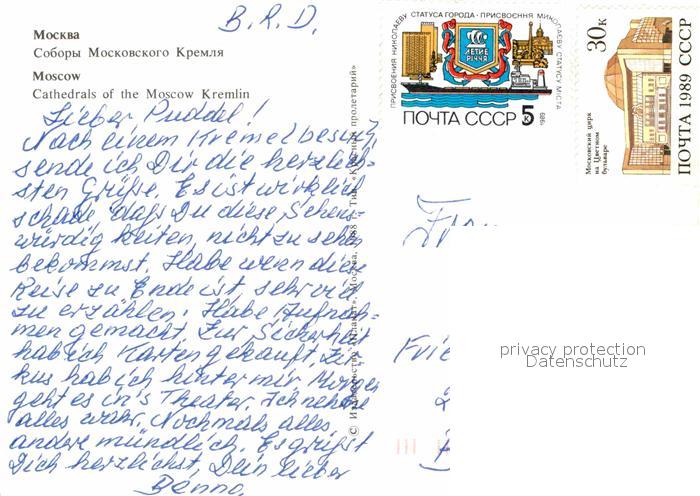 B.R.D.
Москва
Соборы Московского Кремля
Moscow
Cathedrals of the Moscow Kremlin
Lieber Puddel!
Nach einem Kremelbesuch,
sende ich Dir die herzlich-
sten Grüße. Es ist wirklich
schade daß Du diese Sehens-
würdigkeiten, nicht zu sehen
bekommst. Habe wenn diese
Reise zu Ende ist sehr viel
zu erzählen. Habe Aufnah-
men gemacht zur Sicherheit
hab ich Karten gekauft. Zir-
kus hab ich hinter mir Morgen
geht es in's Theater. Ich nehme
alles wahr. Nochmals alles
andere mündlich. Es grüßt
Dich herzlichst, Dein lieber
Benno.
© Издательство «Плакат», Москва, 1988 г. Тип. «Красный пролетарий»
ПРИСВОЕНИЯ НИКОЛАЕВУ СТАТУСА ГОРОДА · ПРИСВОЄННЯ МИКОЛАЄВУ СТАТУСУ МІСТА
ЛЕТИЕ
РІЧЧЯ
ПОЧТА СССР 5к
1989
30к
ПОЧТА 1989 СССР
Московский цирк
на Цветном
бульваре
privacy protection
Datenschutz